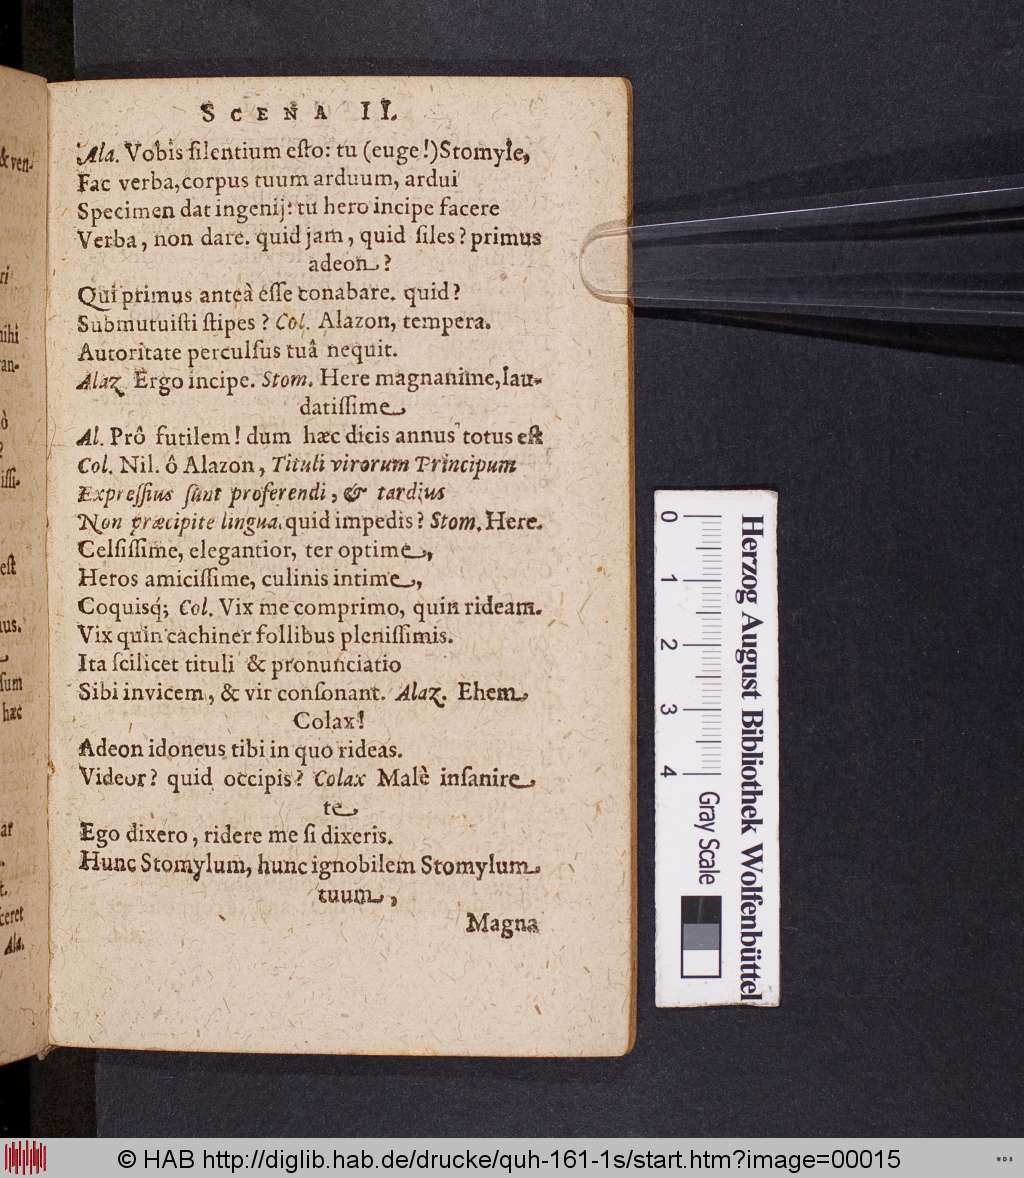 SCENA II.
Ala. Vobis silentium esto: tu (euge!) Stomyle,
Fac verba, corpus tuum arduum, ardui
Specimen dat ingenij: tu hero incipe facere
Verba, non dare. quid jam, quid siles? primus
adeon?
Qui primus anteà esse conabare. quid?
Submutuisti stipes? Col. Alazon, tempera.
Autoritate perculsus tuâ nequit.
Alaz Ergo incipe. Stom. Here magnanime, lau-
datissime
Al. Prô futilem! dum hæc dicis annus totus est
Col. Nil. ô Alazon, Tituli virorum Principum
Expressius sunt proferendi, & tardius
Non præcipite lingua. quid impedis? Stom. Here.
Celsissime, elegantior, ter optime,
Heros amicissime, culinis intime,
Coquisq́; Col. Vix me comprimo, quin rideam.
Vix quin cachiner follibus plenissimis.
Ita scilicet tituli & pronunciatio
Sibi invicem, & vir consonant. Alaz. Ehem
Colax!
Adeon idoneus tibi in quo rideas.
Videor? quid occipis? Colax Malè insanire
te
Ego dixero, ridere me si dixeris.
Hunc Stomylum, hunc ignobilem Stomylum
tuum,
Magna
& ven-
ri
nihi
ran-
ò
?
issi-
est
nus.
sum
hæc
ar
t.
ceret
Ala.
0 1 2 3 4
Gray Scale
Herzog August Bibliothek Wolfenbüttel
© HAB http://diglib.hab.de/drucke/quh-161-1s/start.htm?image=00015
WDB